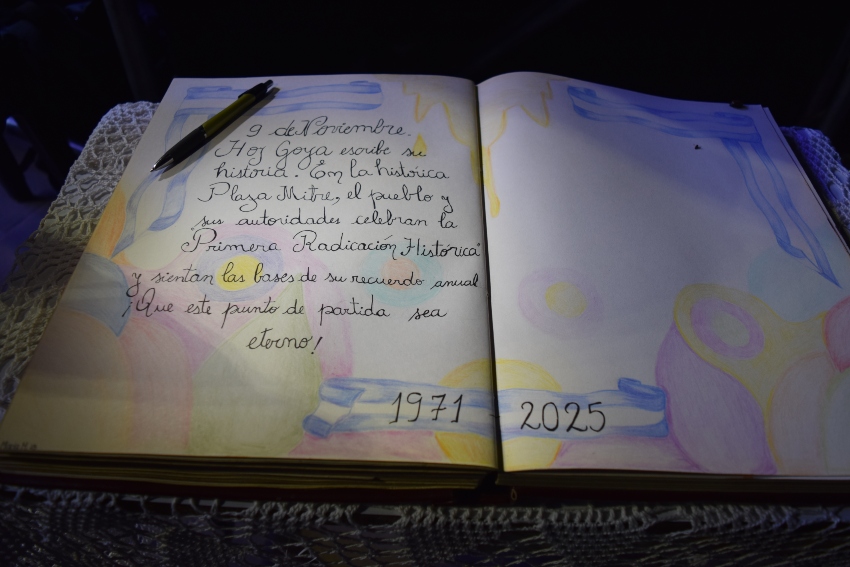 9 de Noviembre.
Hoy Goya escribe su
historia. En la histórica
Plaza Mitre, el pueblo y
sus autoridades celebran la
"Primera Radicación Histórica"
y sientan las bases de su recuerdo anual
¡Que este punto de partida sea
eterno!
1971 - 2025